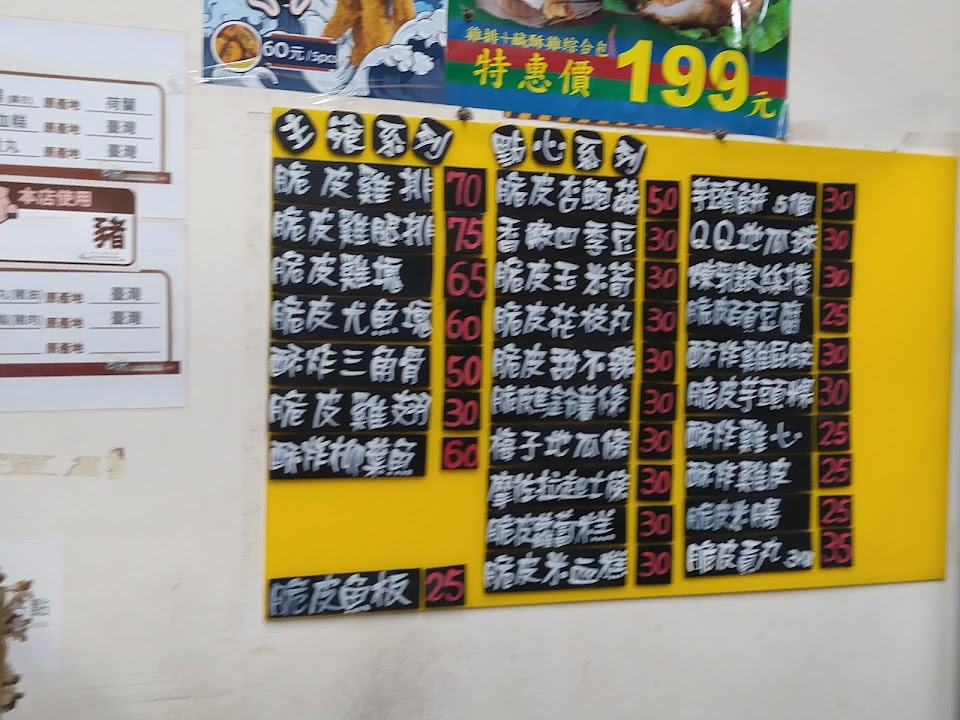 60元/5pcs
雞排+鹹酥雞綜合包
特惠價 199元
原產地 荷蘭
血糕 原產地 臺灣
丸 原產地 臺灣
本店使用
豬
原產地 臺灣
原產地 臺灣
原產地
主餐系列
脆皮雞排 70
脆皮雞腿排 75
脆皮雞塊 65
脆皮尤魚塊 60
酥炸三角骨 50
脆皮雞翅 30
酥炸柳葉魚 60
脆皮魚板 25
點心系列
脆皮杏鮑菇 50
香嫩四季豆 30
脆皮玉米筍 30
脆皮花枝丸 30
脆皮甜不辣 30
脆皮馬鈴薯條 30
梅子地瓜條 30
摩佐拉起士條 30
脆皮蘿蔔糕 30
脆皮米血糕 30
芋頭餅 5個 30
QQ地瓜球 30
煉乳銀絲捲 30
脆皮百頁豆腐 25
酥炸雞屁股 30
脆皮芋頭粿 30
酥炸雞心 25
酥炸雞皮 25
脆皮米腸 25
脆皮貢丸 35